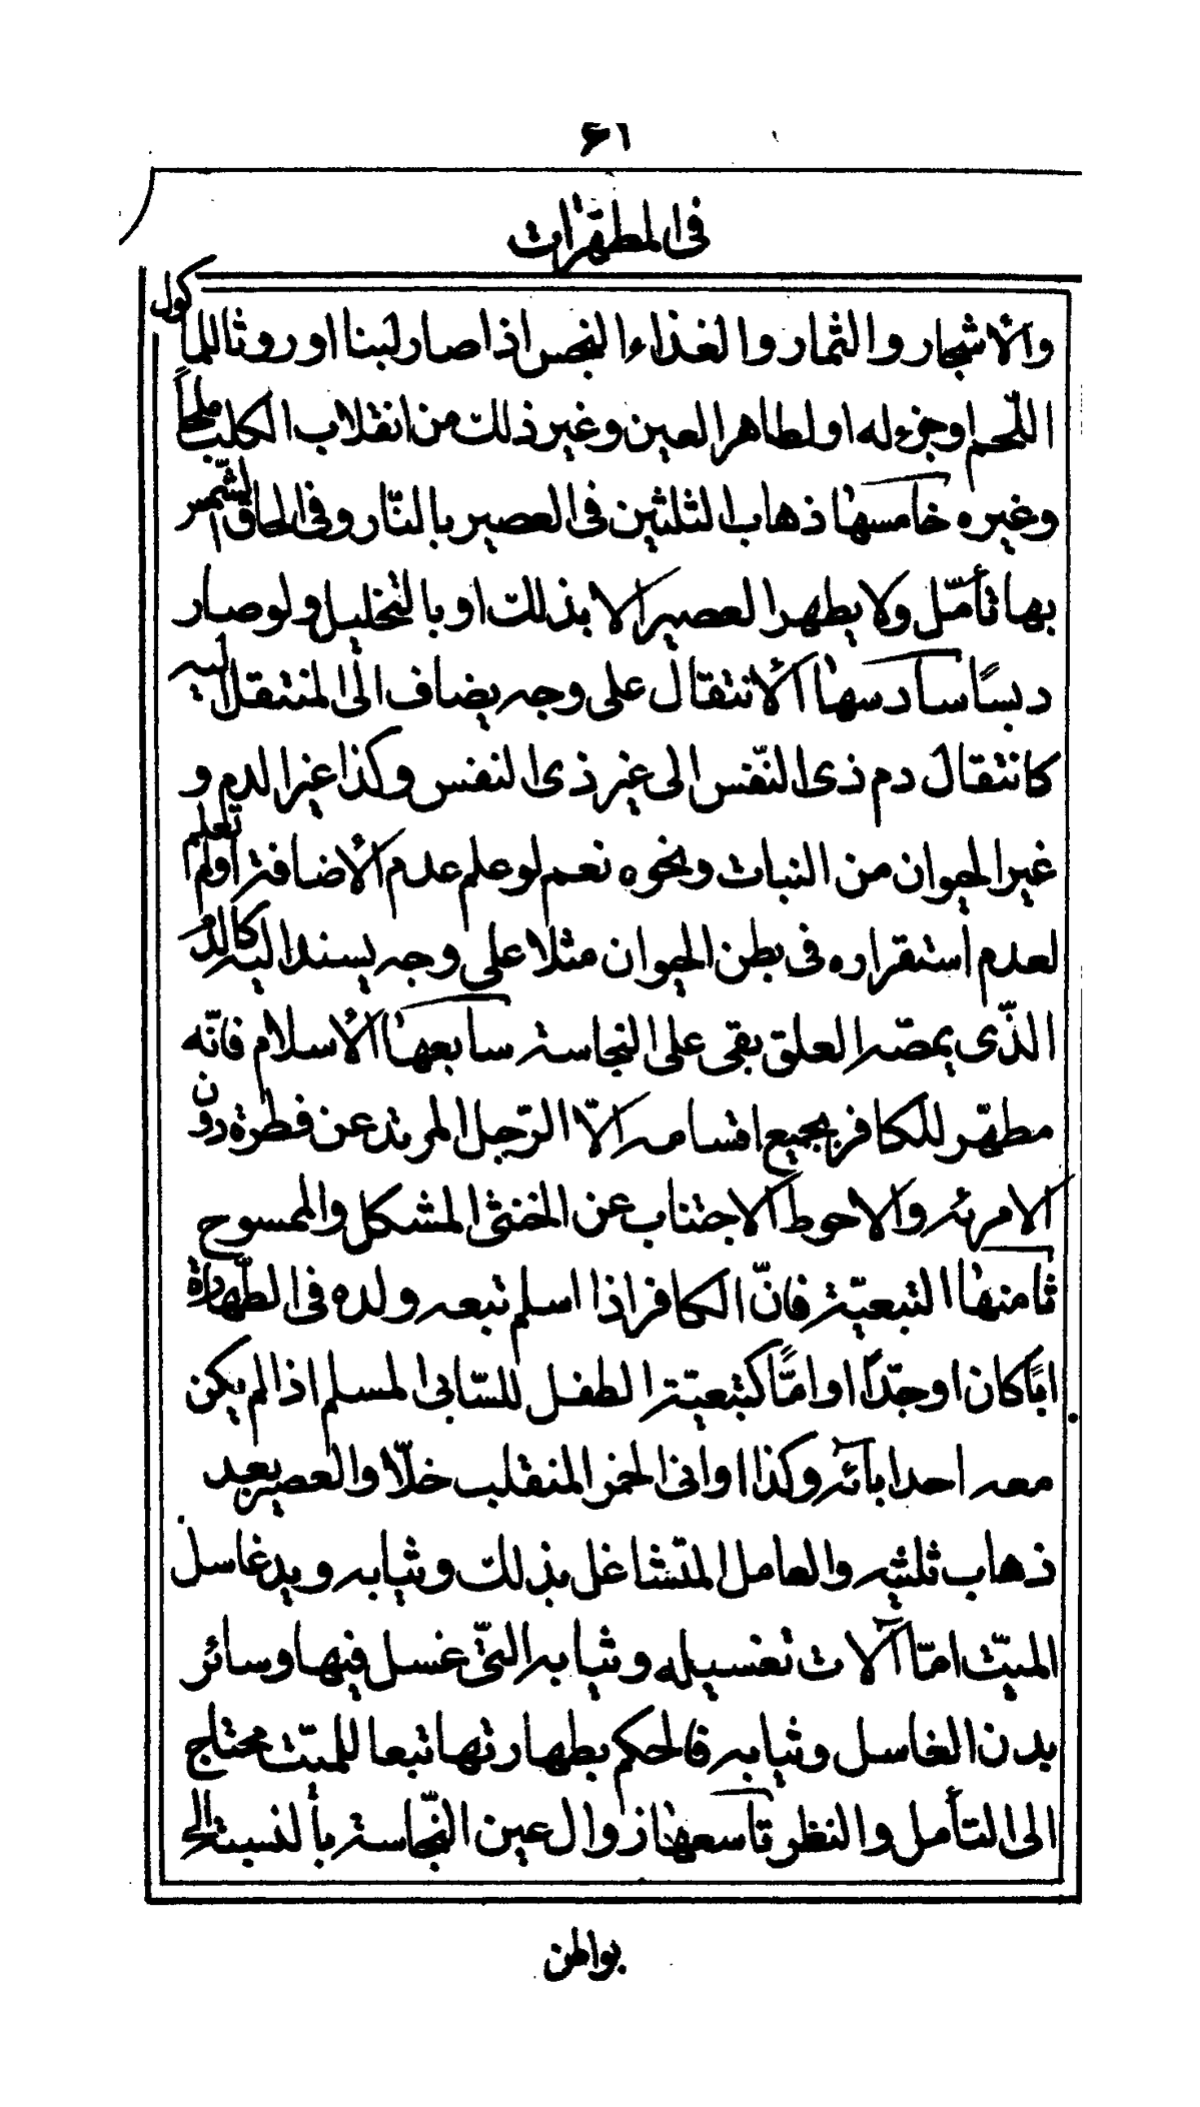 ٦١
فی المطهّرات
والأشجار والثمار والغذاء النجس اذا صار لبنا او روثا للمأكول
اللّحم او جزء له او لطاهر العين وغير ذلك من انقلاب الكلب ملحاً
وغيره خامسها ذهاب الثلثين فی العصير بالنّار وفی الحاق الشّمس
بها تأمّل ولا يطهر العصير الا بذلك او بالتخليل ولو صار
دبسًا سادسها الأنتقال علی وجه يضاف الی المنتقل اليه
كانتقال دم ذی النّفس الی غير ذی النفس وكذا غير الدم و
غير الحيوان من النبات ونحوه نعم لو علم عدم الأضافة او لم تعلم
لعدم استقراره فی بطن الحيوان مثلا علی وجه يسند اليه كالدم
الذّی يمصّه العلق بقی علی النجاسة سابعها الأسلام فانّه
مطهّر للكافر بجميع اقسامه الاّ الرّجل المرتد عن فطرة دون
الامرئة والاحوط الاجتناب عن الخنثی المشكل والممسوح
ثامنها التبعيّة فانّ الكافر اذا اسلم تبعه ولده فی الطّهارة
ابًا كان او جدًّا او امًّا كتبعيّة الطفل للسّابی المسلم اذا لم يكن
معه احد ابآئه وكذا اوانی الخمر المنقلب خلّا والعصير بعد
ذهاب ثلثيه والعامل المتشاغل بذلك وثيابه ويد غاسل
الميّت امّا آلات تغسيله وثيابه التّی غسل فيها وسائر
بدن الغاسل وثيابه فالحكم بطهارتها تبعا للميّت محتاج
الی التأمل والنظر تاسعها زوال عين النّجاسة بالنسبة الی
بواطن